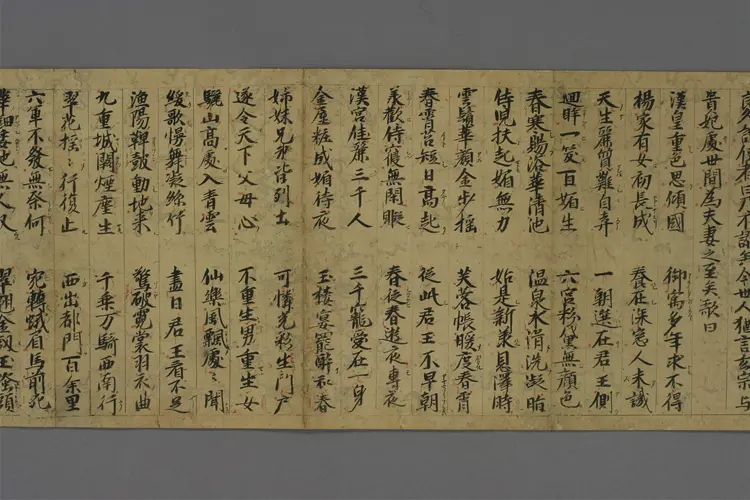 貴妃處世間爲夫妻之至矣歌曰
漢皇重色思傾國 御寓多年求不得
楊家有女初長成 養在深窓人未識
天生麗質難自弃 一朝選在君王側
迴眸一笑百媚生 六宮粉黛無顔色
春寒賜浴華清池 温泉水滑洗凝脂
侍児扶起媚無力 始是新承恩澤時
雲鬢華顔金步揺 芙蓉帳暖度春霄
春霄苦短日高起 從此君王不早朝
承歡侍寢無閑暇 春從春遊夜專夜
漢宮佳麗三千人 三千寵愛在一身
金屋粧成媚待夜 玉樓宴罷醉和春
姉妹兄弟皆列土 可憐光彩生門戸
遂令天下父母心 不重生男重生女
驪山高處入青雲 仙樂風飄處〻聞
緩歌慢舞凝絲竹 盡日君王看不足
漁陽鞞鼓動地来 驚破霓裳羽衣曲
九重城闕煙塵生 千乗万騎西南行
翠花揺〻行復止 西出都門百余里
六軍不發無奈何 宛轉蛾眉馬前死
華鈿委地無人収 翠翹金釵玉搔頭